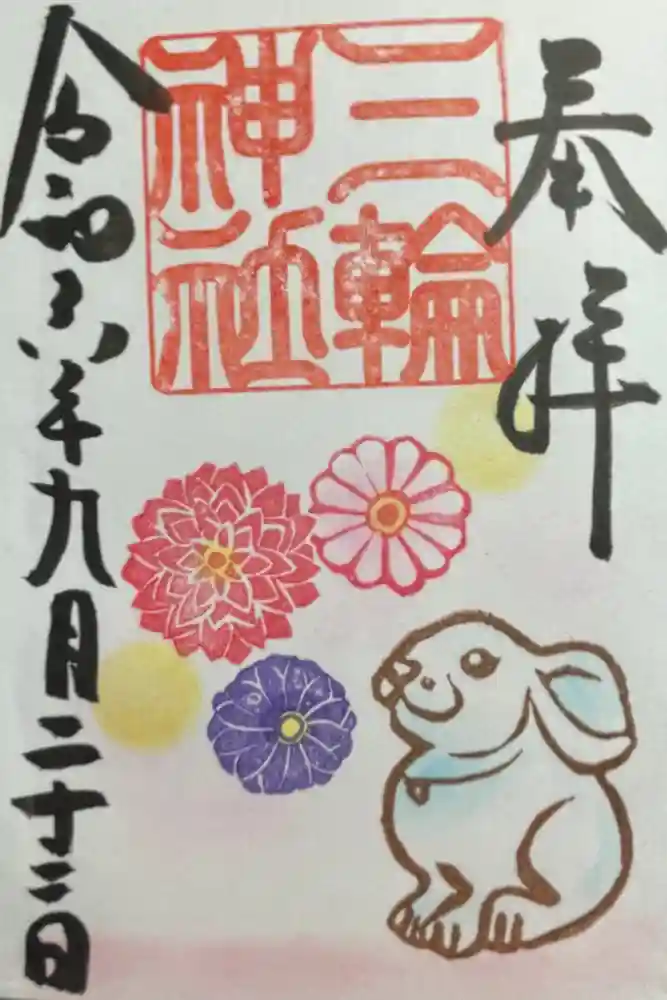 奉拝
三輪
神社
令和六年九月二十二日